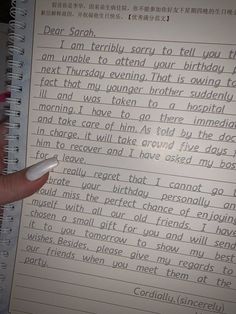 解诉和道歉，并祝福他生日快乐。【优秀满分范文】
Dear Sarah,
I am terribly sorry to tell you th
am unable to attend your birthday p
next Thursday evening. That is owing to
fact that my younger brother suddenly
ill and was taken to a hospital
morning. I have to go there immediat
and take care of him. As told by the doc
in charge, it will take around five days
him to recover and I have asked my bos
for a leave.
I really regret that I cannot go t
brate your birthday personally an
ould miss the perfect chance of enjoying
myself with all our old friends. I have
chosen a small gift for you and will send
it to you tomorrow to show my best
wishes. Besides, please give my regards to
our friends when you meet them at the
party.
Cordially, (sincerely)